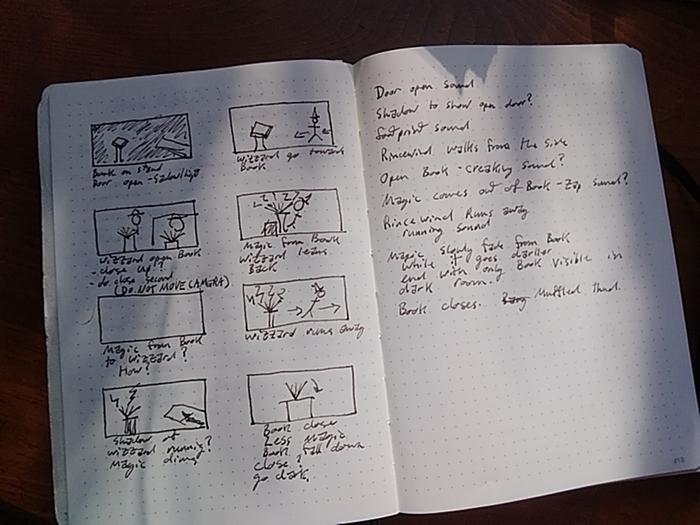 Book on stand
Door open - Shadow/light
Wizzard go towards
Book
Wizzard open Book
- close up?
- do close second
(DO NOT MOVE CAMERA)
Magic from Book
wizzard leans
Back
Magic from Book
to wizzard?
How?
Wizzard runs away
Shadow of
wizzard running?
Magic dims
Book close
Less magic
Book fall down
close.
go dark.
Door open sound
Shadow to show open door?
footprint sound
Rincewind walks from the side
Open Book - creaking sound?
Magic comes out of Book - Zap sound?
Rincewind Runs away
running sound
Magic slowly fade from Book
while it goes darker
end with only Book visible in
dark room.
Book closes. Muffled Thud.